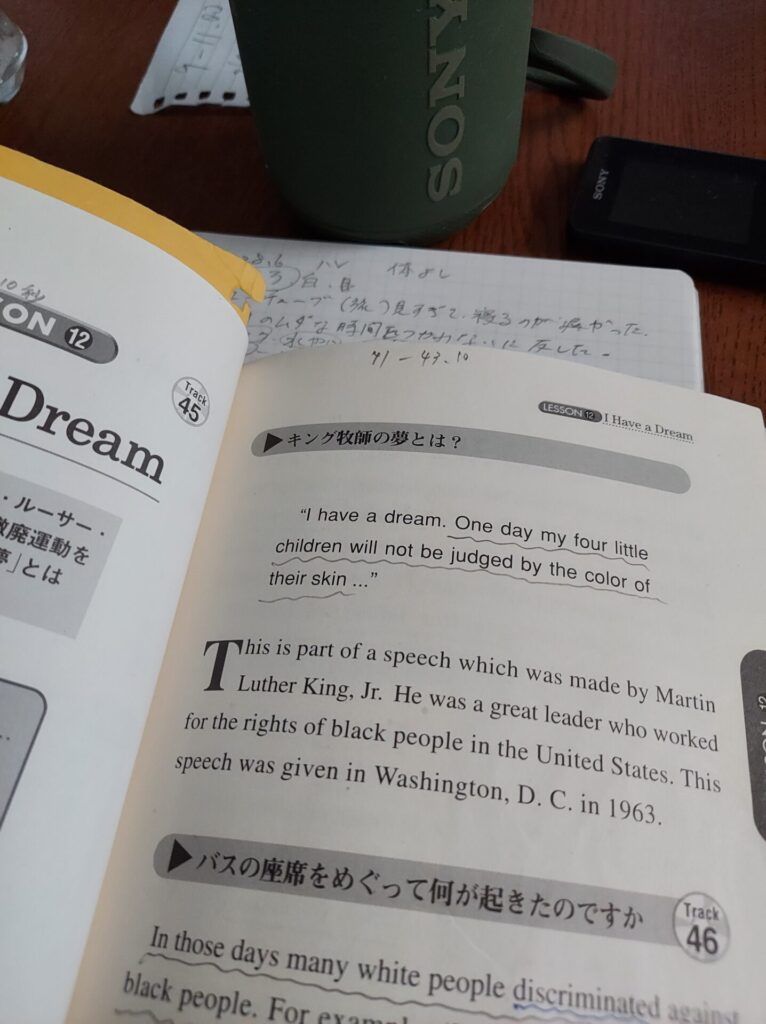 SONY
SONY
ハレ 体よし
41 - 43.10
10秒
12
Track
45
Dream
・ルーサー・
廃運動を
」とは
LESSON 12 I Have a Dream
▶キング牧師の夢とは？
“I have a dream. One day my four little
children will not be judged by the color of
their skin ...”
This is part of a speech which was made by Martin
Luther King, Jr. He was a great leader who worked
for the rights of black people in the United States. This
speech was given in Washington, D. C. in 1963.
▶バスの座席をめぐって何が起きたのですか
Track
46
In those days many white people discriminated against
black people. For example